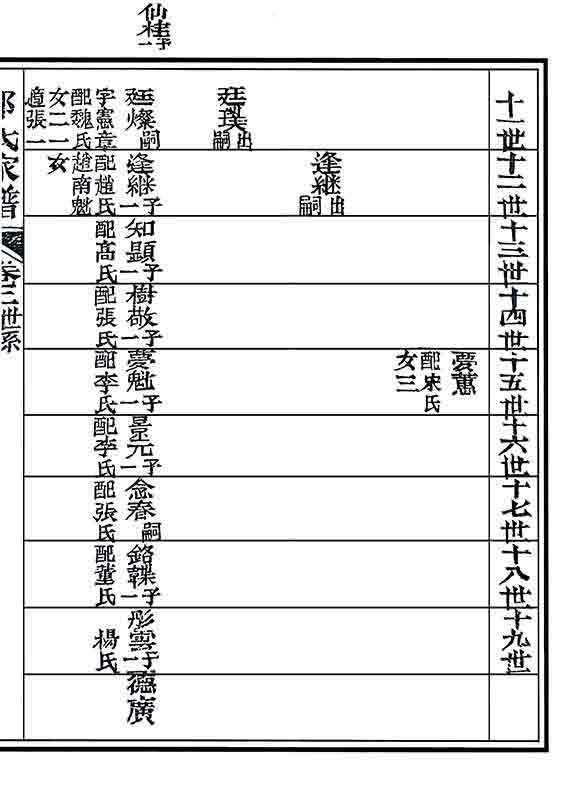 仙桂子一
十一世
十二世
十三世
十四世
十五世
十六世
十七世
十八世
十九世
夢蕙
配宋氏
女三
逢継出嗣
廷璞出嗣
廷燦嗣
字憲章
配魏氏
女二一
適張一
適趙南魁
女
逢継子一
配趙氏
知顯子一
配高氏
樹敬子一
配張氏
夢魁子一
配李氏
景元子一
配李氏
念春嗣
配張氏
銘韡子一
配董氏
彤雲子二
楊氏
德廣
氏家譜
卷三世系